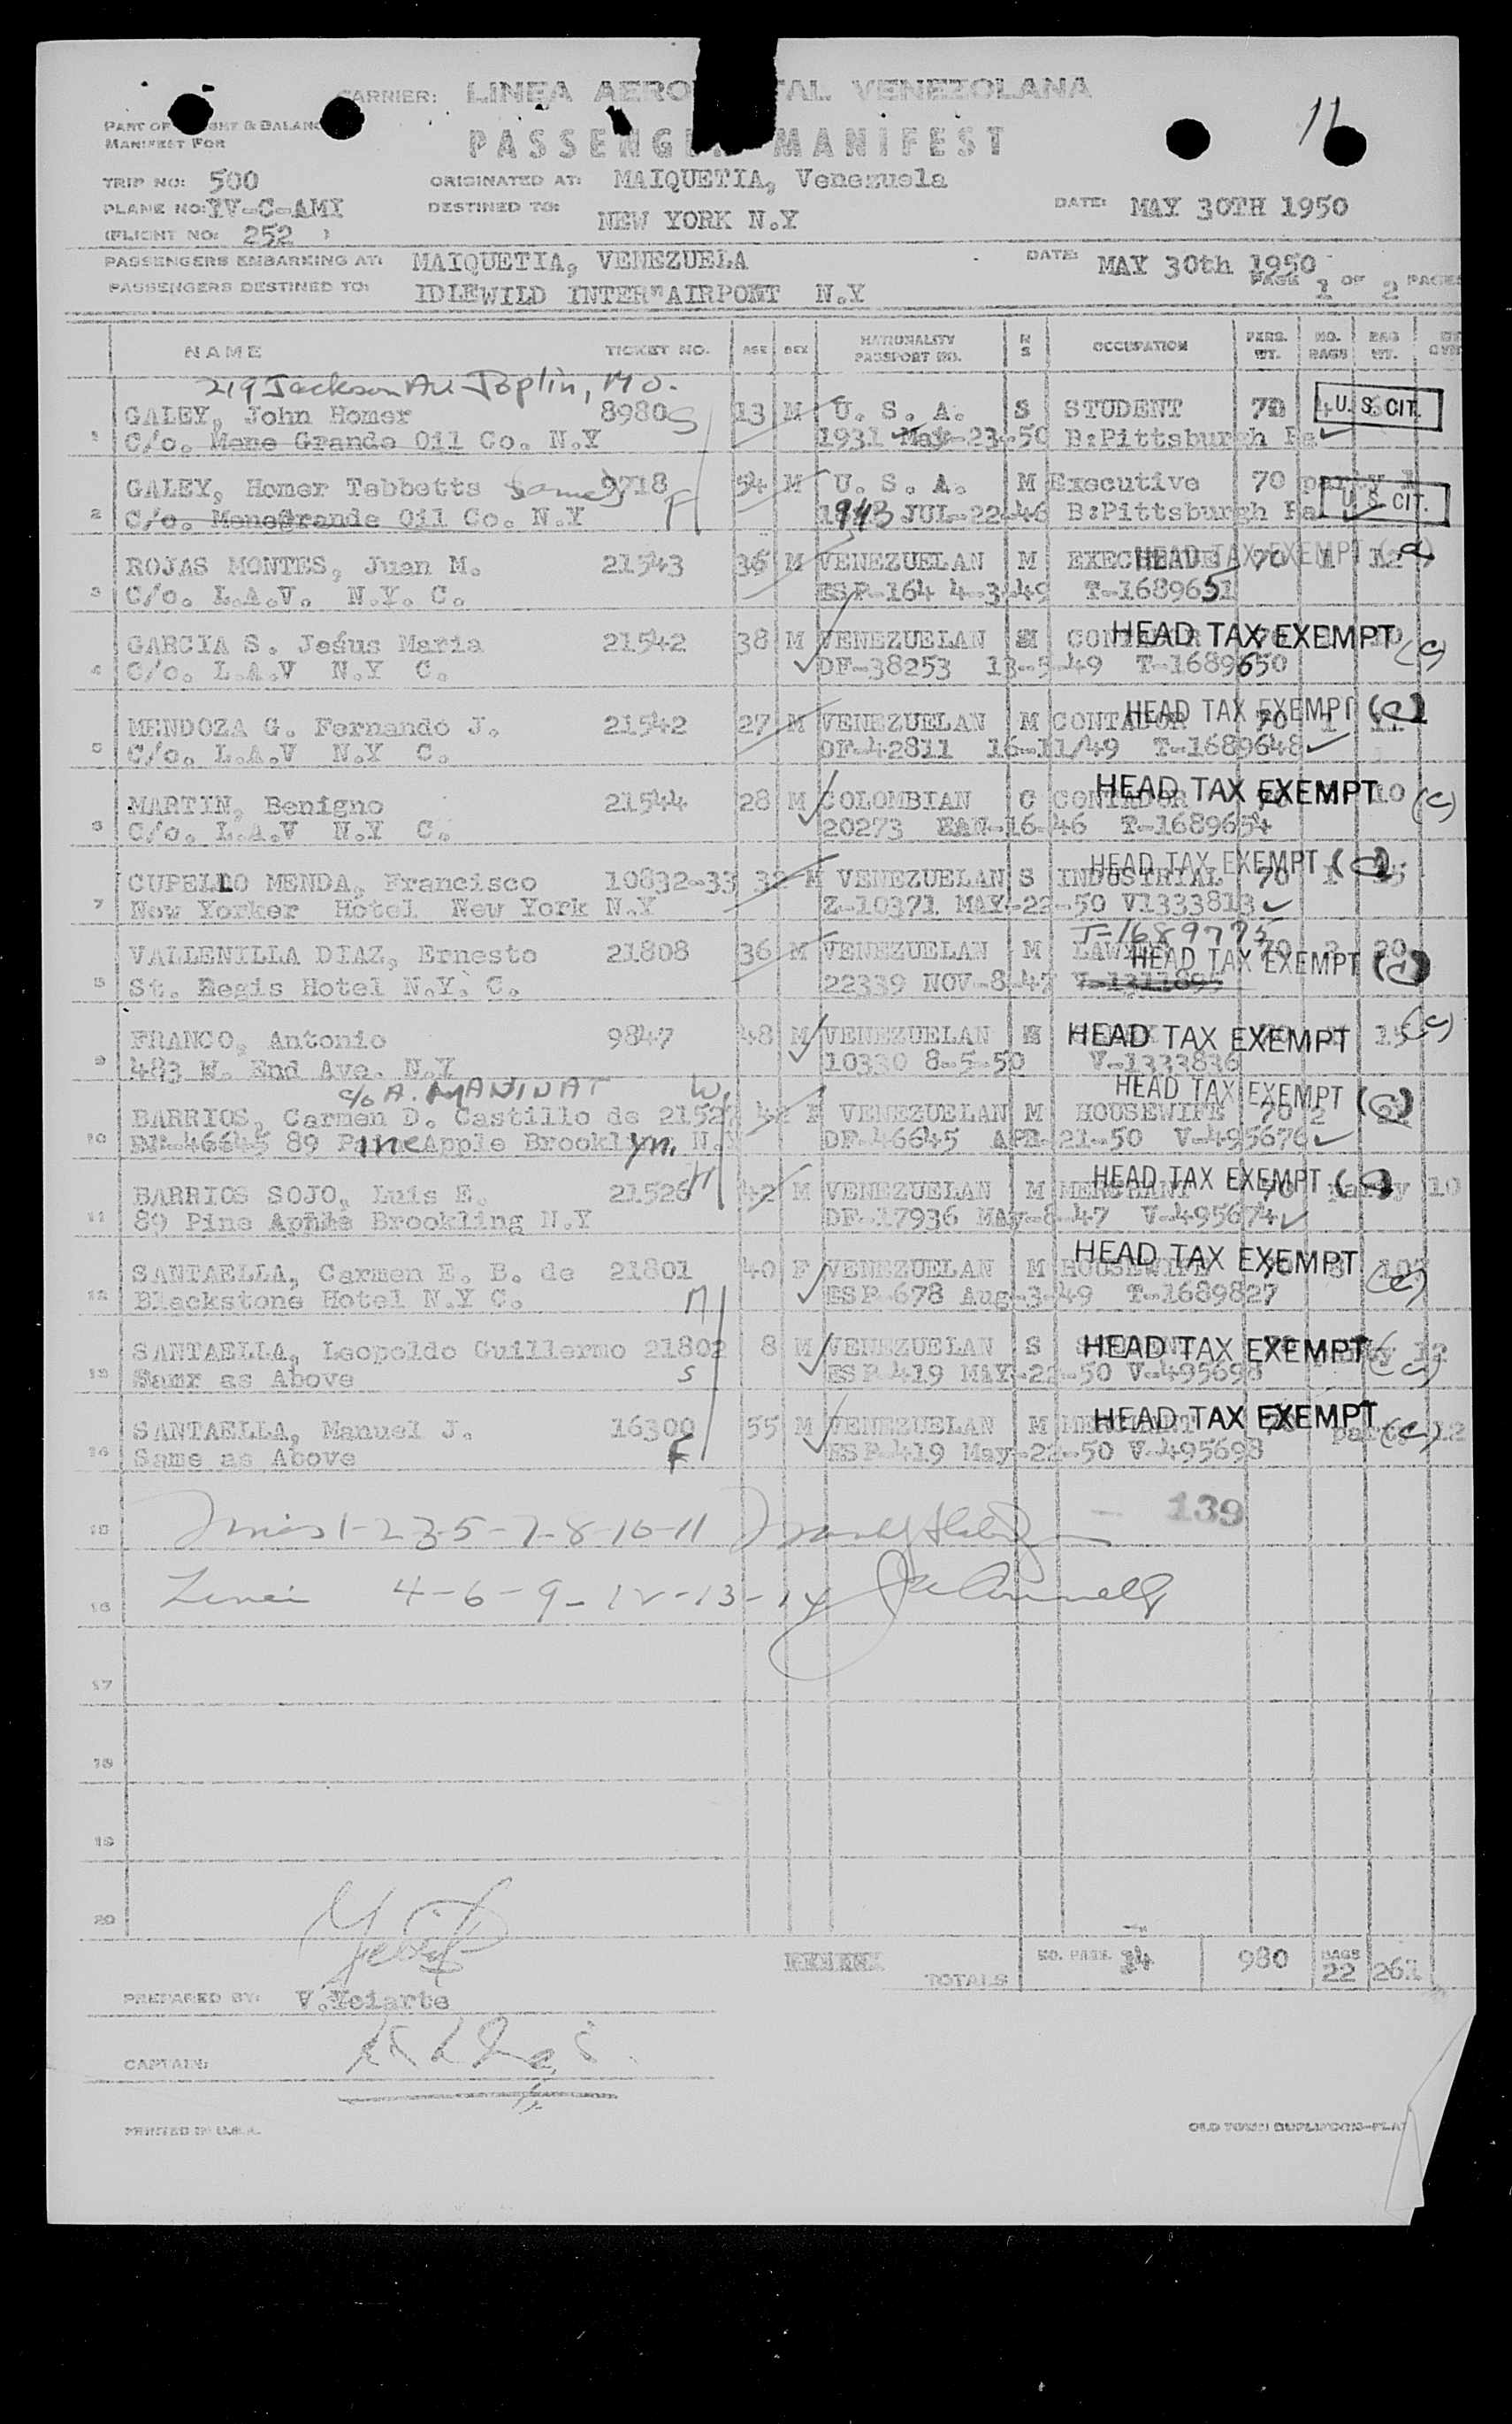 CARRIER: LINEA AERO TAL VENEZOLANA
PART OF GHT & BALANC
MANIFEST FOR
PASSENG MANIFEST
11
TRIP NO: 500 ORIGINATED AT: MAIQUETIA, Venezuela
PLANE NO: YV-C-AMI DESTINED TO: NEW YORK N.Y DATE: MAY 30TH 1950
(FLIGHT NO: 252 )
PASSENGERS EMBARKING AT: MAIQUETIA, VENEZUELA DATE: MAY 30th 1950
PASSENGERS DESTINED TO: IDLEWILD INTER"AIRPORT N.Y PAGE 1 OF 2 PAGES
NAME TICKET NO. AGE SEX NATIONALITY PASSPORT NO. M S OCCUPATION PERS. WT. NO. BAGS BAG WT.
219 Jackson Av Joplin, MO.
GALEY, John Homer 8980 S 13 M U. S. A. S STUDENT 70 4 U. S. CIT.
1 C/o. Mene Grande Oil Co. N.Y 1931 May-23-50 B:Pittsburgh Pa
GALEY, Homer Tebbetts Same 9718 F 54 M U. S. A. M Executive 70 party 1
2 C/o. MeneGrande Oil Co. N.Y 1943 JUL-22-46 B:Pittsburgh Pa U. S. CIT.
ROJAS MONTES, Juan M. 21543 36 M VENEZUELAN M HEAD TAX EXEMPT 70 1 12
3 C/o. L.A.V. N.Y. C. ESP-164 4-3-49 T-1689651
GARCIA S. Jesús Maria 21542 38 M VENEZUELAN M HEAD TAX EXEMPT (c)
4 C/o. L.A.V N.Y C. DF-38253 13-5-49 T-1689650
MENDOZA G. Fernando J. 21542 27 M VENEZUELAN M CONTADOR HEAD TAX EXEMPT 70 1 11
5 C/o. L.A.V N.Y C. DF-42811 16-11/49 T-1689648
MARTIN, Benigno 21544 28 M COLOMBIAN C CONTADOR HEAD TAX EXEMPT 10 (c)
6 C/o. L.A.V N.Y C. 20273 EAN-16-46 T-1689654
CUPELLO MENDA, Francisco 10832-33 32 M VENEZUELAN S INDUSTRIAL HEAD TAX EXEMPT 70 1
7 New Yorker Hotel New York N.Y Z-10371 MAY-22-50 V1333813
T-1689775
VALLENILLA DIAZ, Ernesto 21808 36 M VENEZUELAN M LAWYER HEAD TAX EXEMPT 70 2 20
8 St. Regis Hotel N.Y. C. 22339 NOV-8-47 V-1311895
FRANCO, Antonio 9847 48 M VENEZUELAN HEAD TAX EXEMPT 15 (c)
9 483 W. End Ave. N.Y 10330 8-5-50 V-1333836
c/o A. MANINAT W.
BARRIOS, Carmen D. Castillo de 2152 42 F VENEZUELAN M HOUSEWIFE HEAD TAX EXEMPT 70 2
10 DF-46645 89 PineApple Brooklyn, N. DF-46645 APR-21-50 V-495676
BARRIOS SOJO, Luis E. 21526 H 42 M VENEZUELAN M MERCHANT HEAD TAX EXEMPT 70 Party 10
11 89 Pine Apple Brookling N.Y DF-17936 May-8-47 V-495674
SANTAELLA, Carmen E. B. de 21801 40 F VENEZUELAN M HOUSEWIFE HEAD TAX EXEMPT (c)
12 Blackstone Hotel N.Y C. M ESP-678 Aug-3-49 T-1689827
SANTAELLA, Leopoldo Guillermo 21802 8 M VENEZUELAN S STUDENT HEAD TAX EXEMPT 12 (c)
13 Samr as Above S ESP-419 MAY-22-50 V-495698
SANTAELLA, Manuel J. 16300 55 M VENEZUELAN M MERCHANT HEAD TAX EXEMPT party 12 (c)
14 Same as Above F ESP-419 May-22-50 V-495698
139
15 1-2-3-5-7-8-10-11
16 4-6-9-12-13-14
17
18
19
20
TOTALS NO. PASS. 14 980 BAGS 22 261
PREPARED BY: V.Yciarte
CAPTAIN:
PRINTED IN U.S.A. OLD TOWN